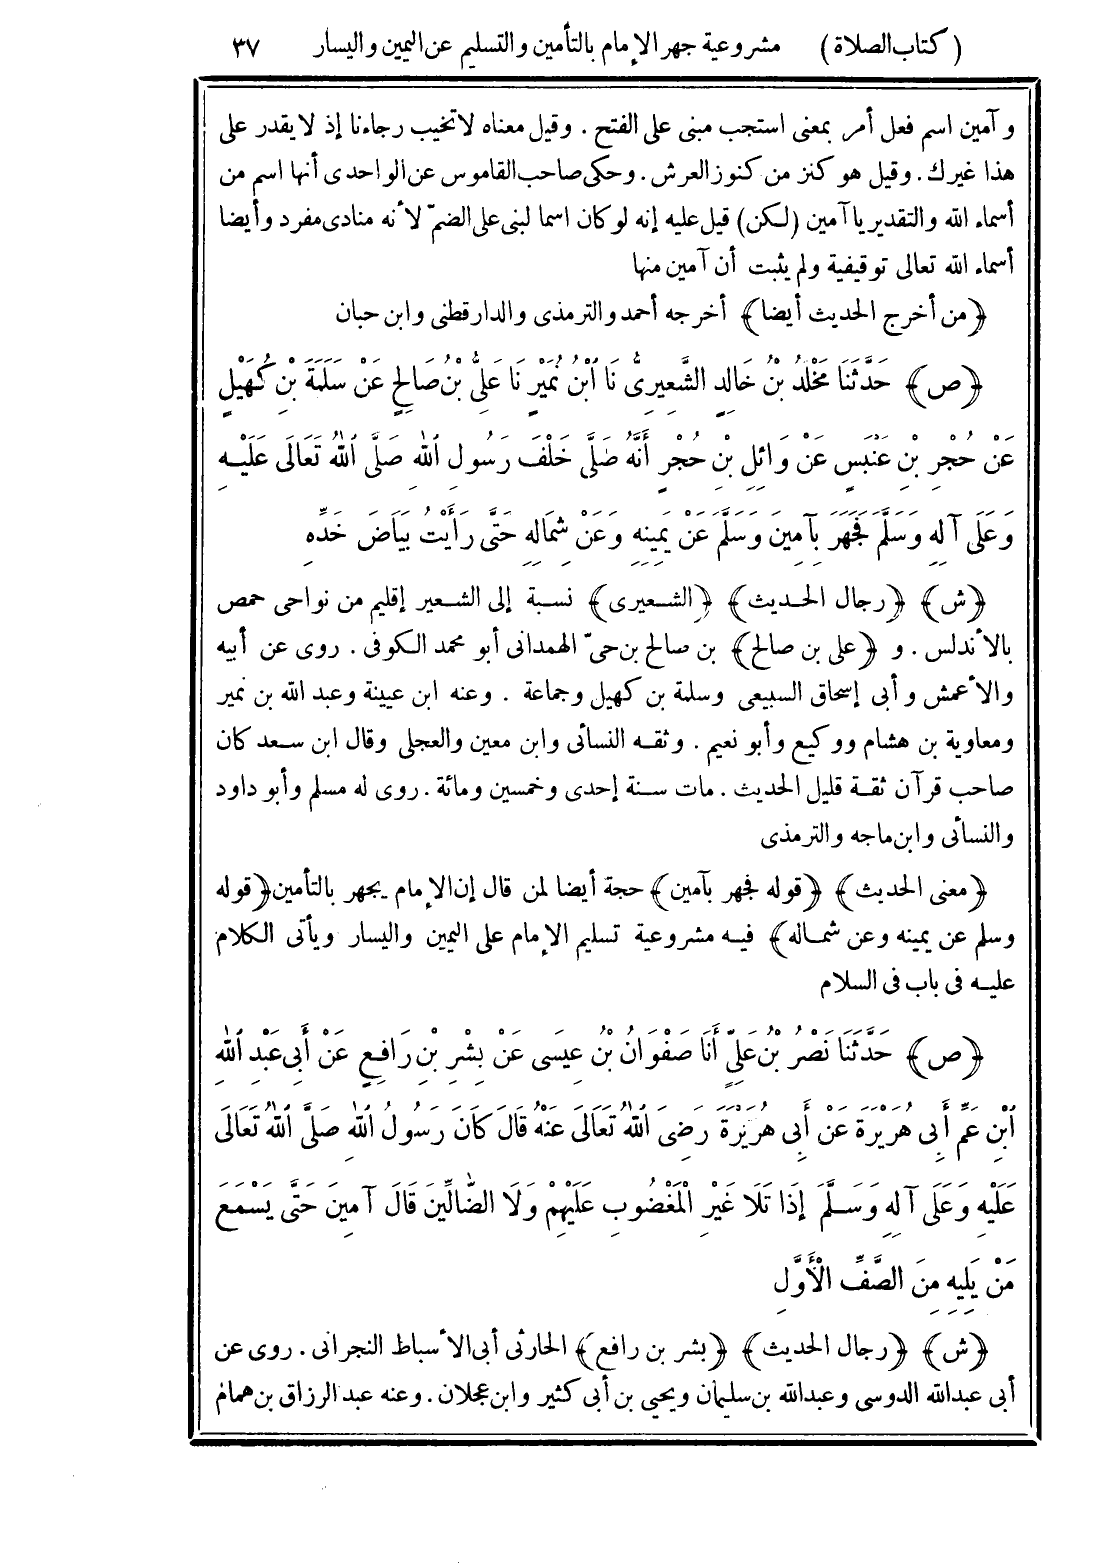 (كتاب الصلاة) مشروعية جهر الإمام بالتأمين والتسليم عن اليمين واليسار ٣٧
وآمين اسم فعل أمر بمعنى استجب مبنى على الفتح . وقيل معناه لاتخيب رجاءنا إذ لايقدر على
هذا غيرك . وقيل هو كنز من كنوز العرش . وحكى صاحب القاموس عن الواحدى أنها اسم من
أسماء الله والتقدير يا آمين (لكن) قيل عليه إنه لو كان اسما لبنى على الضمّ لأنه منادى مفرد وأيضا
أسماء الله تعالى توقيفية ولم يثبت أن آمين منها
﴿من أخرج الحديث أيضا﴾ أخرجه أحمد والترمذى والدارقطنى وابن حبان
﴿ص﴾ حَدَّثَنَا مَخْلَدُ بْنُ خَالِدٍ الشَّعِيرِىُّ نَا ابْنُ نُمَيْرٍ نَا عَلِىُّ بْنُ صَالِحٍ عَنْ سَلَمَةَ بْنِ كُهَيْلٍ
عَنْ حُجْرِ بْنِ عَنْبَسٍ عَنْ وَائِلِ بْنِ حُجْرٍ أَنَّهُ صَلَّى خَلْفَ رَسُولِ اللهِ صَلَّى اللهُ تَعَالَى عَلَيْهِ
وَعَلَى آلِهِ وَسَلَّمَ فَجَهَرَ بِآمِينَ وَسَلَّمَ عَنْ يَمِينِهِ وَعَنْ شِمَالِهِ حَتَّى رَأَيْتُ بَيَاضَ خَدِّهِ
﴿ش﴾ ﴿رجال الحديث﴾ ﴿الشعيرى﴾ نسبة إلى الشعير إقليم من نواحى حمص
بالأندلس . و ﴿على بن صالح﴾ بن صالح بن حىّ الهمدانى أبو محمد الكوفى . روى عن أبيه
والأعمش وأبى إسحاق السبيعى وسلمة بن كهيل وجماعة . وعنه ابن عيينة وعبد الله بن نمير
ومعاوية بن هشام ووكيع وأبو نعيم . وثقه النسائى وابن معين والعجلى وقال ابن سعد كان
صاحب قرآن ثقة قليل الحديث . مات سنة إحدى وخمسين ومائة . روى له مسلم وأبو داود
والنسائى وابن ماجه والترمذى
﴿معنى الحديث﴾ ﴿قوله فجهر بآمين﴾ حجة أيضا لمن قال إن الإمام يجهر بالتأمين ﴿قوله
وسلم عن يمينه وعن شماله﴾ فيه مشروعية تسليم الإمام على اليمين واليسار ويأتى الكلام
عليه فى باب فى السلام
﴿ص﴾ حَدَّثَنَا نَصْرُ بْنُ عَلِىٍّ أَنَا صَفْوَانُ بْنُ عِيسَى عَنْ بِشْرِ بْنِ رَافِعٍ عَنْ أَبِى عَبْدِ اللهِ
ابْنِ عَمِّ أَبِى هُرَيْرَةَ عَنْ أَبِى هُرَيْرَةَ رَضِىَ اللهُ تَعَالَى عَنْهُ قَالَ كَانَ رَسُولُ اللهِ صَلَّى اللهُ تَعَالَى
عَلَيْهِ وَعَلَى آلِهِ وَسَلَّمَ إِذَا تَلَا غَيْرِ الْمَغْضُوبِ عَلَيْهِمْ وَلَا الضَّالِّينَ قَالَ آمِينَ حَتَّى يَسْمَعَ
مَنْ يَلِيهِ مِنَ الصَّفِّ الْأَوَّلِ
﴿ش﴾ ﴿رجال الحديث﴾ ﴿بشر بن رافع﴾ الحارثى أبى الأسباط النجرانى . روى عن
أبى عبدالله الدوسى وعبدالله بن سليمان ويحيى بن أبى كثير وابن عجلان . وعنه عبد الرزاق بن همام